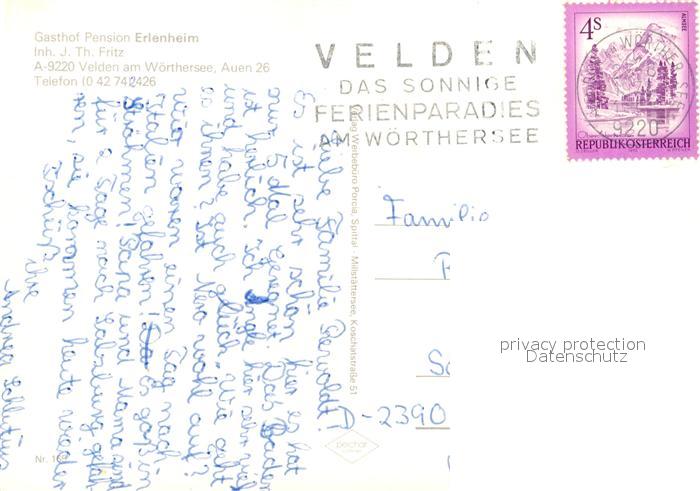 Gasthof Pension Erlenheim
Inh. J. Th. Fritz
A-9220 Velden am Wörthersee, Auen 26
Telefon (0 42 74) 2426
VELDEN
DAS SONNIGE
FERIENPARADIES
AM WÖRTHERSEE
4S
ALMSEE
9220
REPUBLIK ÖSTERREICH
Liebe Familie
Es ist sehr schön hier es hat
nur 5 Mal geregnet. Das Baden
ist herrlich. Ich angle hier sehr viel
und habe auch glück. Wie geht
es ihnen? Ist Vera wohl auf?
wir waren einen Tag nach
Italien gefahren! Es goß in
Strömen! Papa und Mama sind
für 2 Tage nach Salzburg gefah
ren, sie kommen heute wieder
Tschüß
ihre
Andrea
Verlag Werbebüro Porcia, Spittal · Millstättersee, Koschatstraße 51
Familie
D-2390
privacy protection
Datenschutz
Nr.